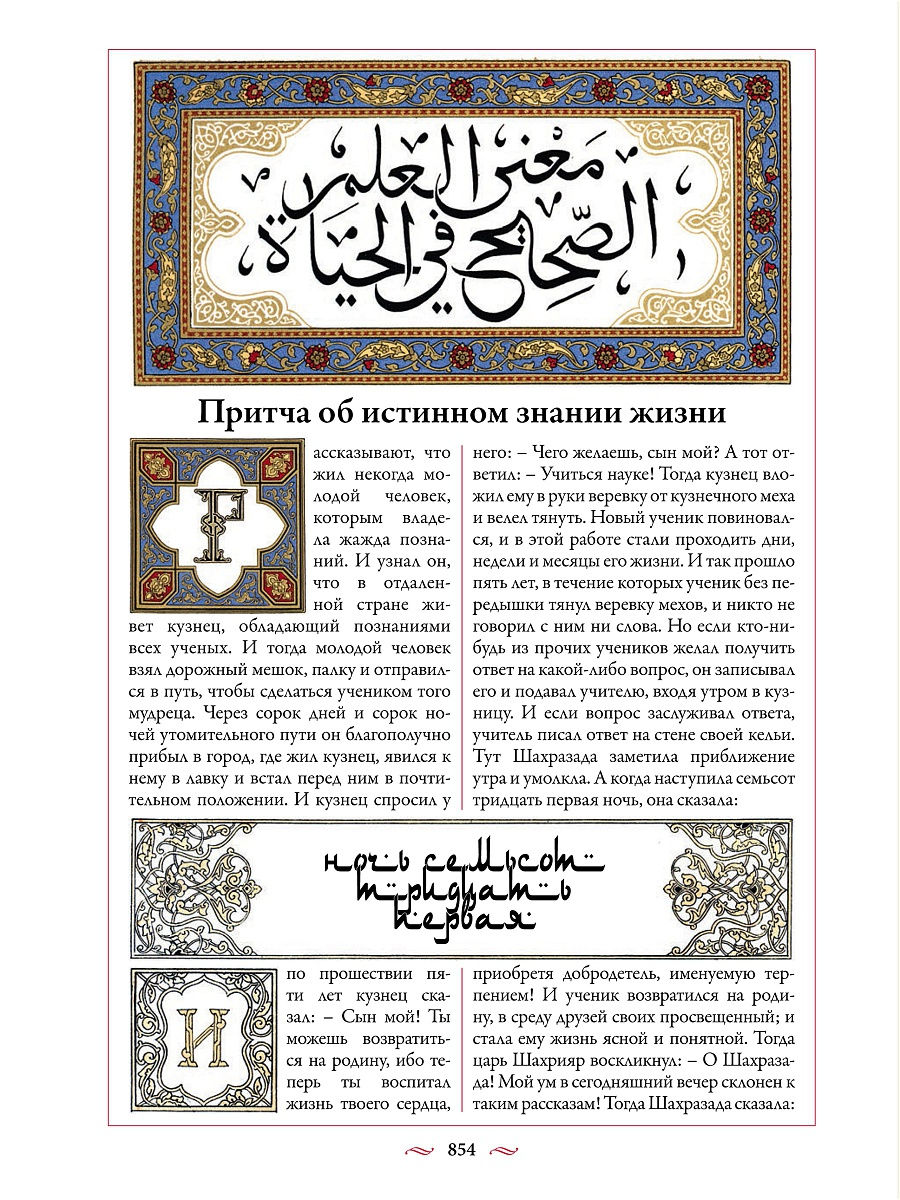 مَعْنى العلم
الصّحِيح في الحياة
Притча об истинном знании жизни
Р
ассказывают, что
жил некогда мо-
лодой человек,
которым владе-
ла жажда позна-
ний. И узнал он,
что в отдален-
ной стране жи-
вет кузнец, обладающий познаниями
всех ученых. И тогда молодой человек
взял дорожный мешок, палку и отправил-
ся в путь, чтобы сделаться учеником того
мудреца. Через сорок дней и сорок но-
чей утомительного пути он благополучно
прибыл в город, где жил кузнец, явился к
нему в лавку и встал перед ним в почти-
тельном положении. И кузнец спросил у
него: – Чего желаешь, сын мой? А тот от-
ветил: – Учиться науке! Тогда кузнец вло-
жил ему в руки веревку от кузнечного меха
и велел тянуть. Новый ученик повиновал-
ся, и в этой работе стали проходить дни,
недели и месяцы его жизни. И так прошло
пять лет, в течение которых ученик без пе-
редышки тянул веревку мехов, и никто не
говорил с ним ни слова. Но если кто-ни-
будь из прочих учеников желал получить
ответ на какой-либо вопрос, он записывал
его и подавал учителю, входя утром в куз-
ницу. И если вопрос заслуживал ответа,
учитель писал ответ на стене своей кельи.
Тут Шахразада заметила приближение
утра и умолкла. А когда наступила семьсот
тридцать первая ночь, она сказала:
ночь семьсот
тридцать
первая
И
по прошествии пя-
ти лет кузнец ска-
зал: – Сын мой! Ты
можешь возвратить-
ся на родину, ибо те-
перь ты воспитал
жизнь твоего сердца,
приобретя добродетель, именуемую тер-
пением! И ученик возвратился на роди-
ну, в среду друзей своих просвещенный; и
стала ему жизнь ясной и понятной. Тогда
царь Шахрияр воскликнул: – О Шахраза-
да! Мой ум в сегодняшний вечер склонен к
таким рассказам! Тогда Шахразада сказала:
854